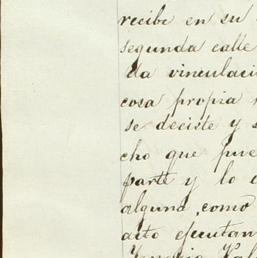 recibe en su
segunda calle
da vinculaci
cosa propia
se deciste y s
cho que pue
parte y lo
alguna, como
acto ejecutan